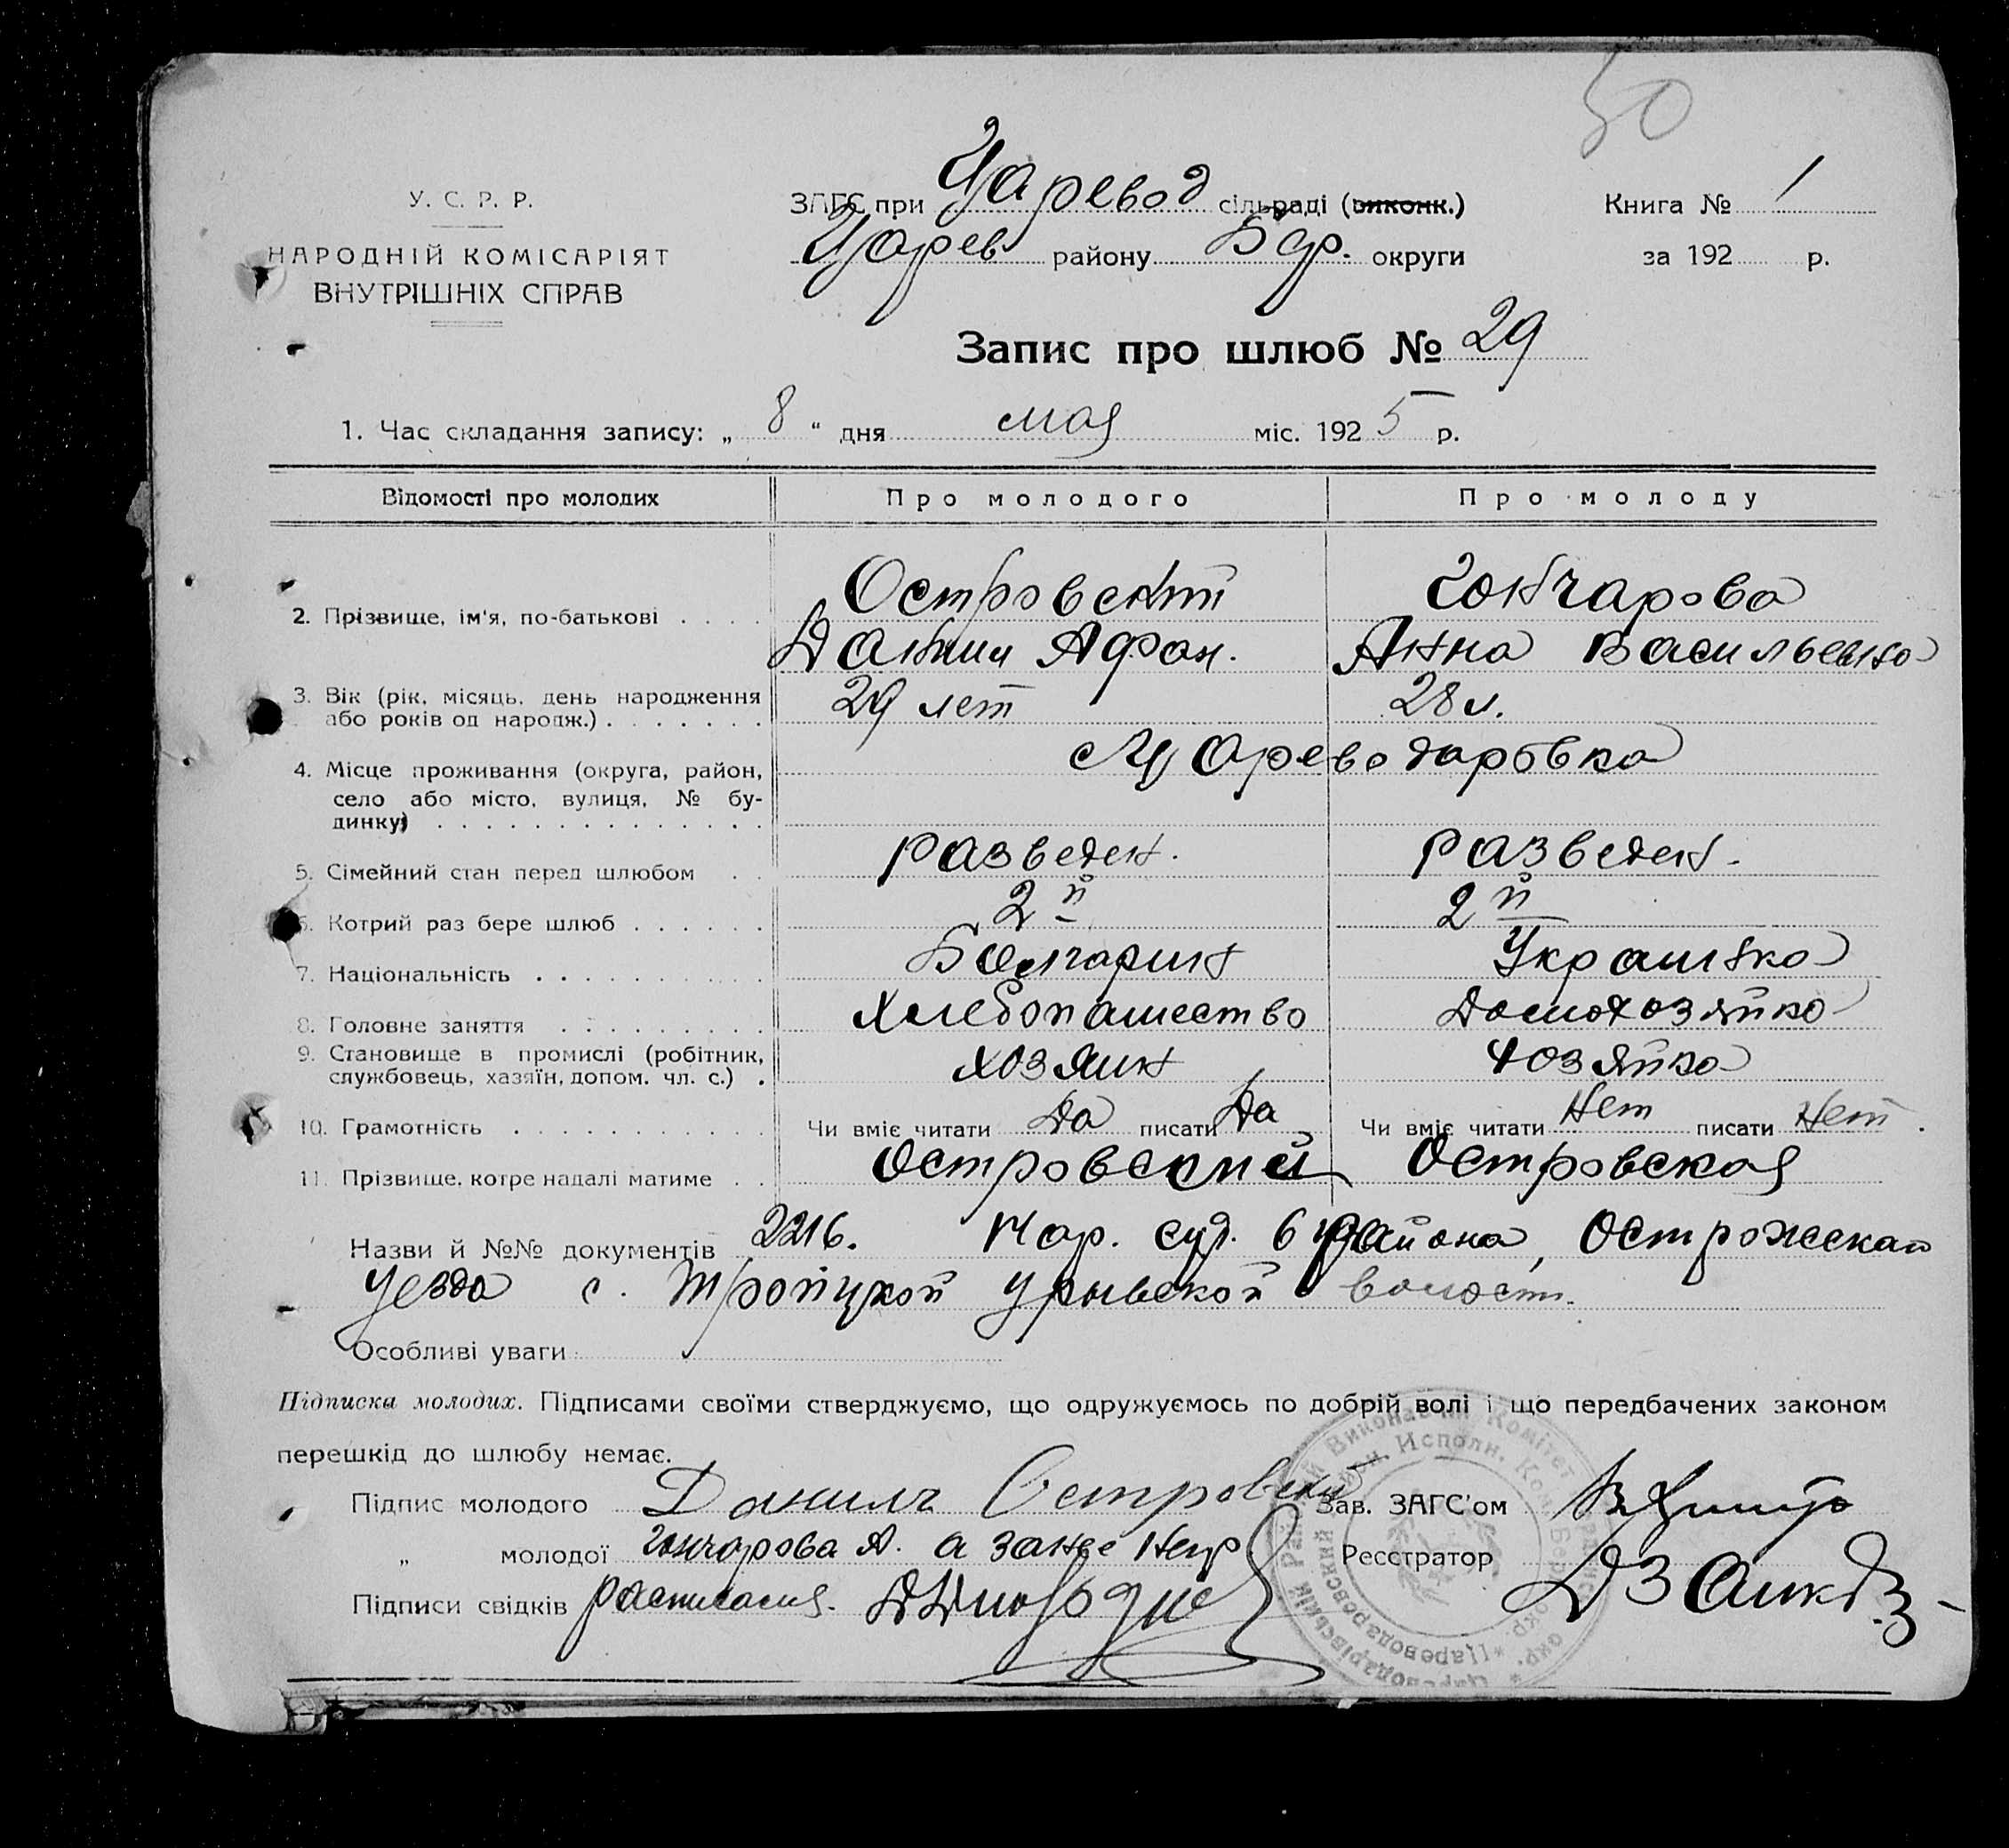 50
У. С. Р. Р.
НАРОДНІЙ КОМІСАРІЯТ
ВНУТРІШНІХ СПРАВ
ЗАГС при Царевод сільраді (виконк.)
Царев району Бер. округи
Книга № 1
за 192 р.
Запис про шлюб № 29
1. Час складання запису: „ 8 “ дня мая міс. 1925 р.
Відомості про молодих Про молодого Про молоду
2. Прізвище, ім'я, по-батькові . . . . Островский Гончарова
Данил Афан. Анна Васильевна
3. Вік (рік, місяць, день народження 29 лет 28 л.
або років од народж.) . . . . . . .
4. Місце проживання (округа, район, с Цареводаровка
село або місто, вулиця, № бу-
динку) . . . . . . . . . . . . . .
5. Сімейний стан перед шлюбом . . разведен. разведен.
6. Котрий раз бере шлюб . . . . . . 2й 2й
7. Національність . . . . . . . . . . Болгарин Украинка
8. Головне заняття . . . . . . . . . Хлебопашество Домохозяйка
9. Становище в промислі (робітник, хозяин хозяйка
службовець, хазяїн, допом. чл. с.) .
10. Грамотність . . . . . . . . . . . Чи вміє читати Да писати Да Чи вміє читати Нет писати Нет
11. Прізвище, котре надалі матиме . . Островский Островская
Назви й №№ документів 2216. Нар. суд. 6 района, Острожскаг
уезда с. Тройцкой Урывской волости.
Особливі уваги
Підписка молодих. Підписами своїми стверджуємо, що одружуємось по добрій волі і що передбачених законом
перешкід до шлюбу немає.
Підпис молодого Данилъ Островский Зав. ЗАГС'ом
„ молодої Гончарова А. а за нее негр Реєстратор
Підписи свідків расписался.